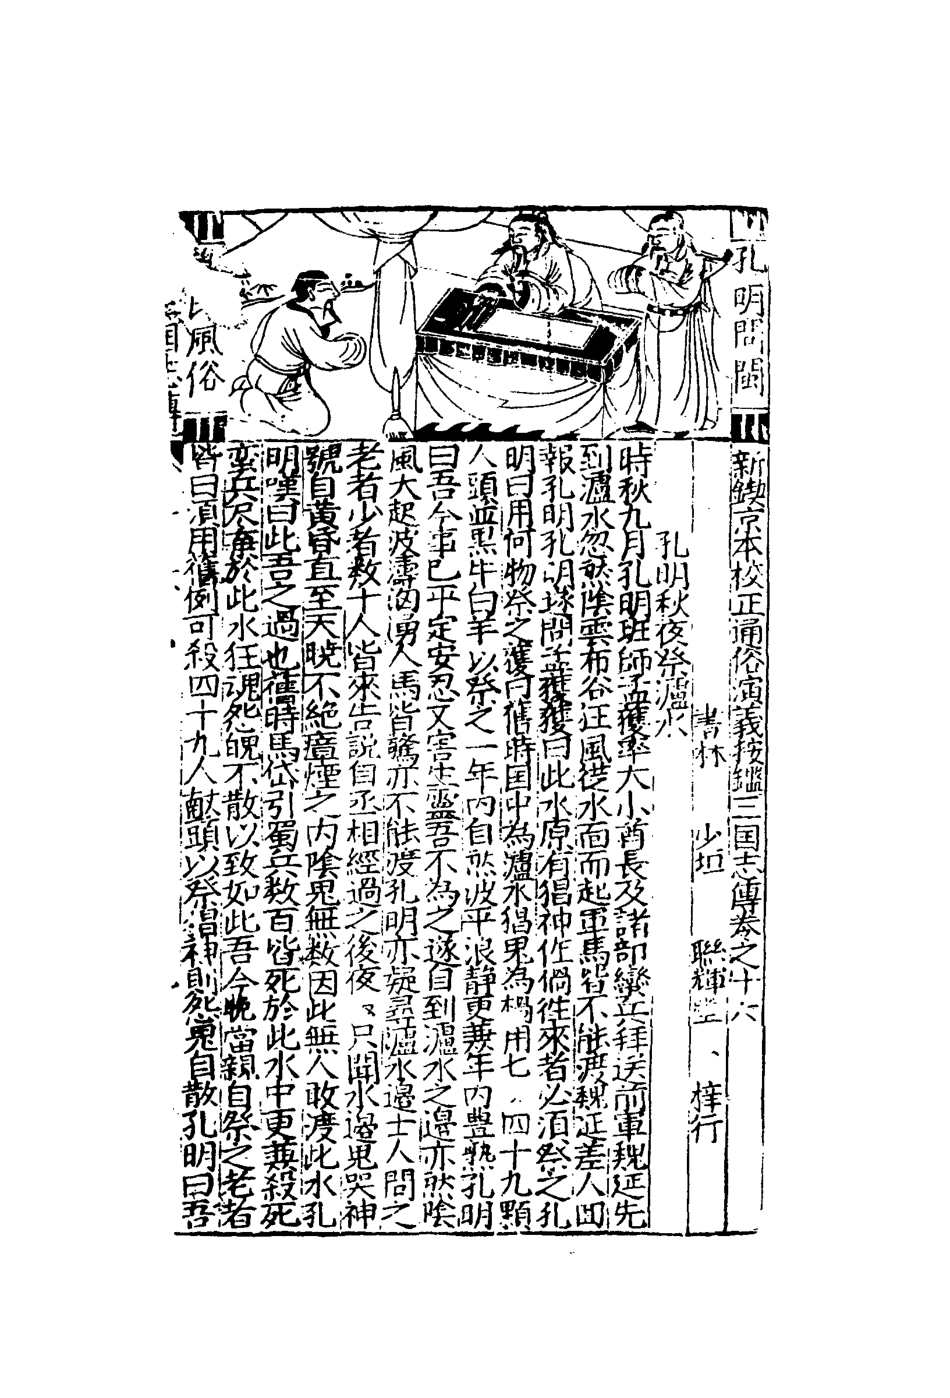 孔明問閩
風俗
國志傳
新鍥京本校正通俗演義按鑑三国志傳卷之十六
書林 少垣 聯輝堂 梓行
孔明秋夜祭瀘水
時秋九月孔明班師孟獲率大小酋長及諸部蠻兵拜送前軍魏延先
到瀘水忽然陰雲布谷狂風從水面而起軍馬皆不能渡魏延差人回
報孔明孔明遂問孟獲獲曰此水原有猖神作禍徃來者必須祭之孔
明曰用何物祭之獲曰舊時国中為瀘水猖鬼為禍用七〻四十九顆
人頭並黒牛白羊以祭之一年内自然波平浪静更兼年内豊熟孔明
曰吾今事已平定安忍又害生靈吾不為之遂自到瀘水之邉亦然陰
風大起波濤洶湧人馬皆驚亦不能渡孔明亦疑尋瀘水邉士人問之
老者少者数十人皆來告說自丞相經過之後夜〻只聞水邉鬼哭神
號自黄昏直至天曉不絶瘴煙之内陰鬼無数因此無人敢渡此水孔
明嘆曰此吾之過也舊時馬岱引蜀兵数百皆死於此水中更兼殺死
蛮兵尽棄於此水狂魂死魄不散以致如此吾今晩當親自祭之老者
皆曰須用舊例可殺四十九人献頭以祭猖神則冤鬼自散孔明曰吾